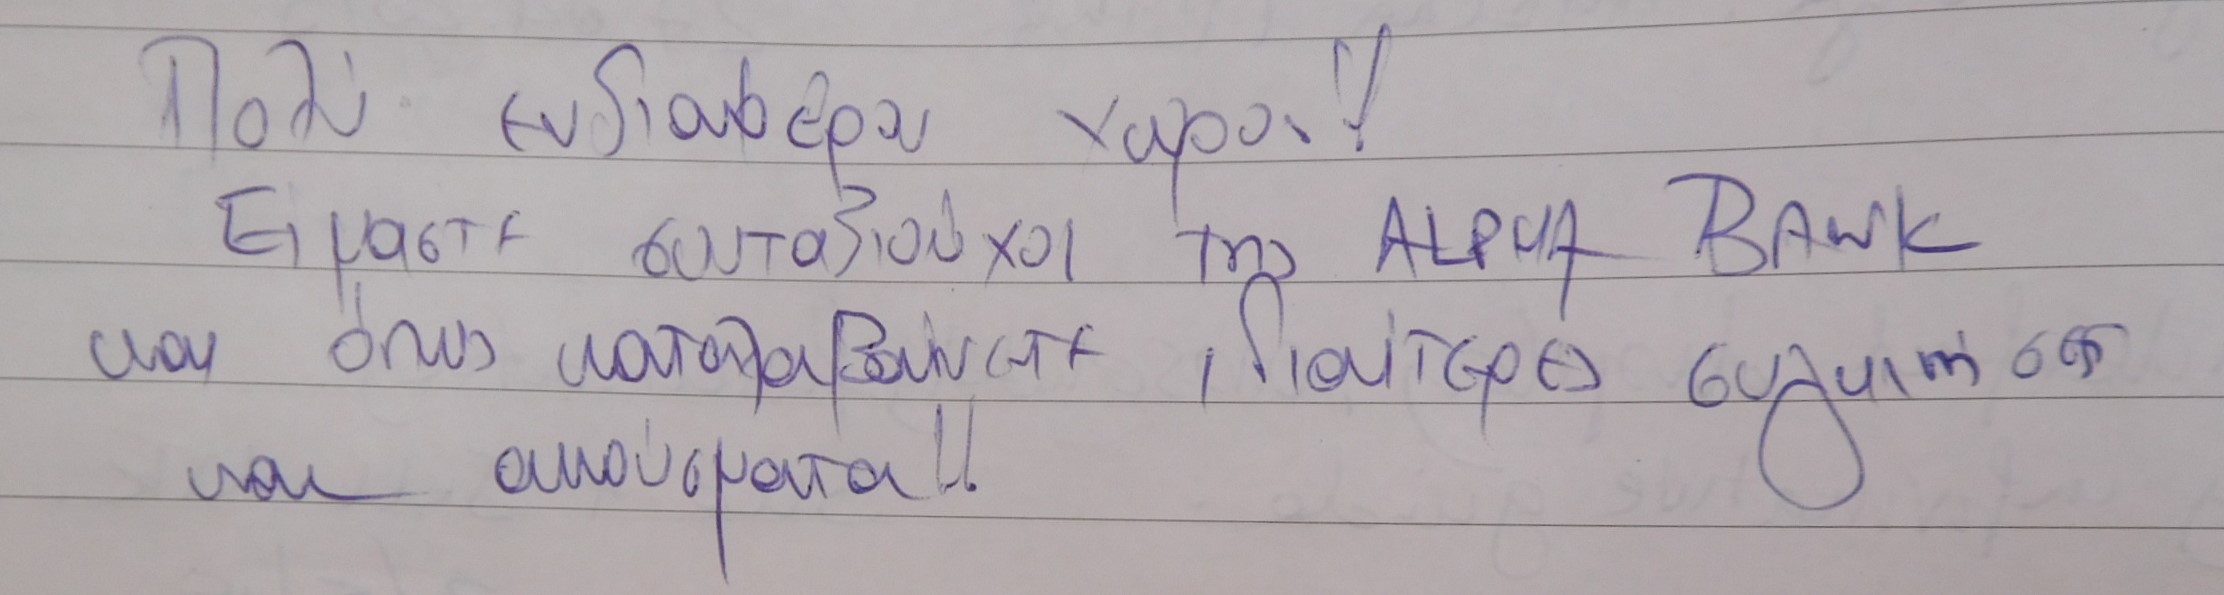 Πολύ ενδιαφέρον χώρος!!
Είμαστε συνταξιούχοι της ALPHA BANK
και όπως καταλαβαίνετε ιδιαίτερες συγκινήσεις
και ακούσματα!!